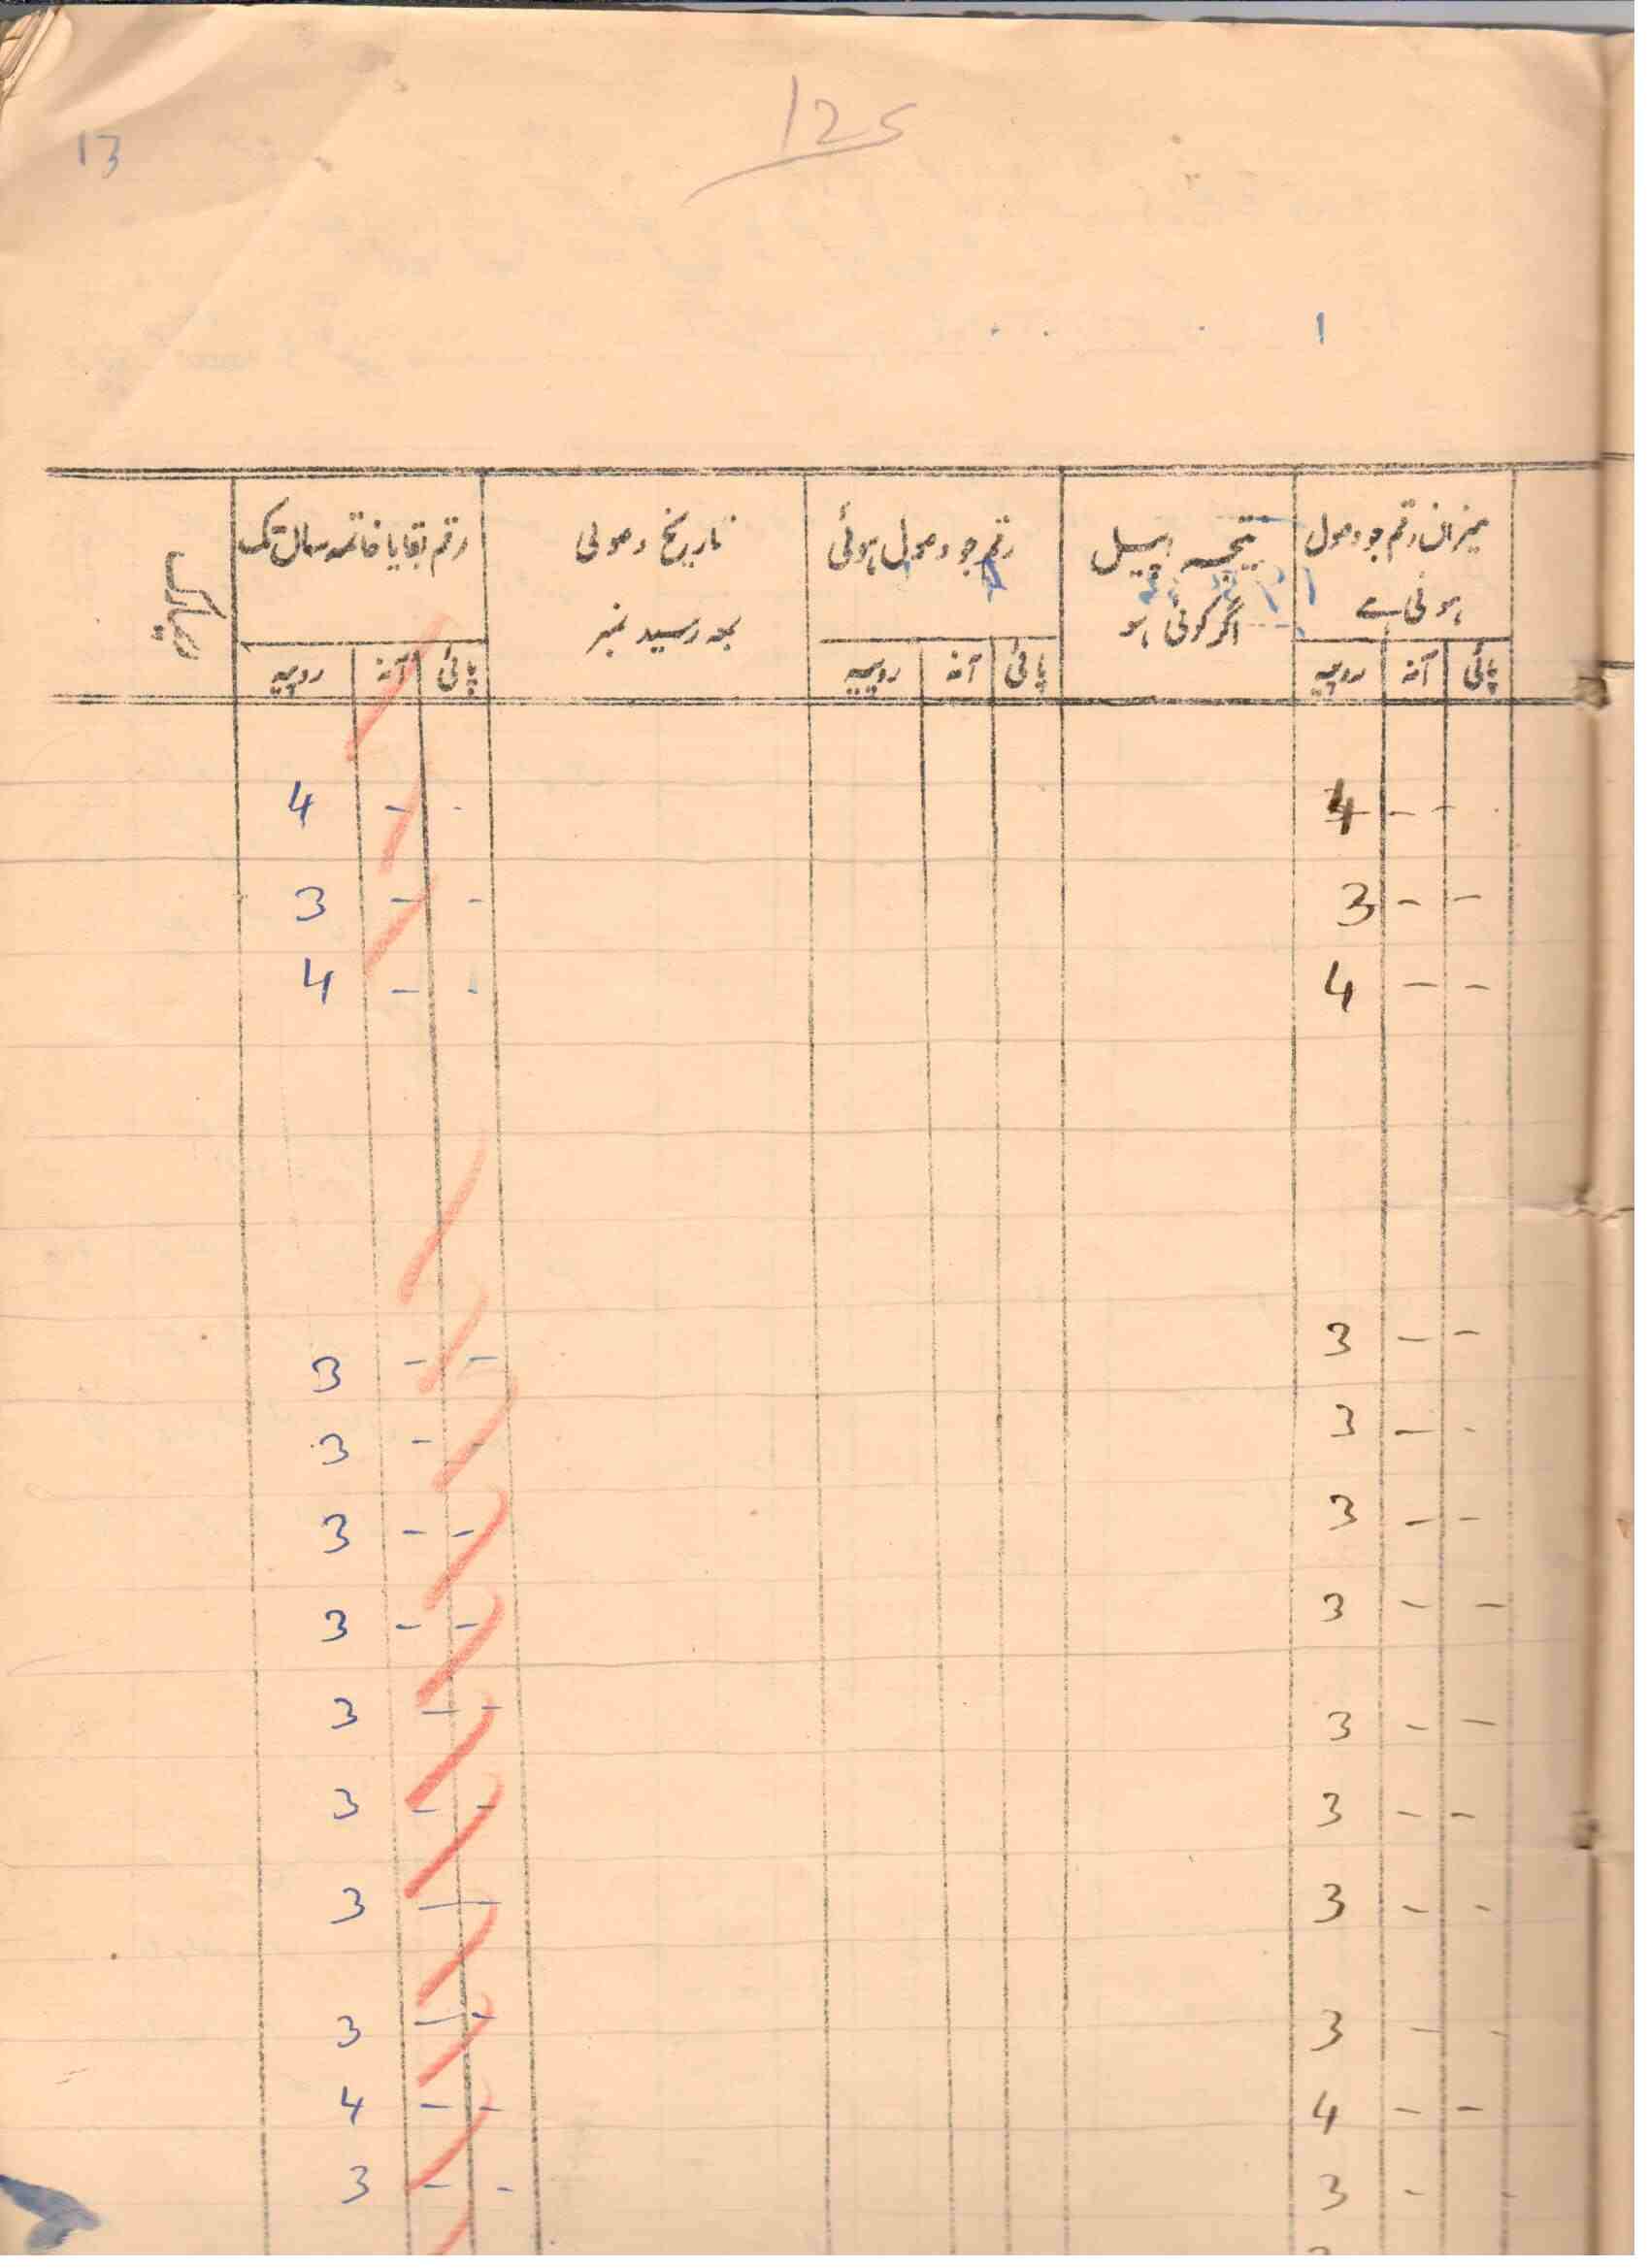 125
13
1
میزان رقم جو وصول ہونی ہے
نتیجہ اپیل اگر کوئی ہو
رقم جو وصول ہوئی
تاریخ وصولی بمعہ رسید نمبر
رقم بقایا خاتمہ سال تک
پائی آنہ روپیہ پائی آنہ روپیہ پائی آنہ روپیہ
4 - - 4 - -
3 - - 3 - -
4 - - 4 - -
3 - - 3 - -
3 - - 3 - -
3 - - 3 - -
3 - - 3 - -
3 - - 3 - -
3 - - 3 - -
3 - - 3 - -
3 - - 3 - -
4 - - 4 - -
3 - - 3 - -